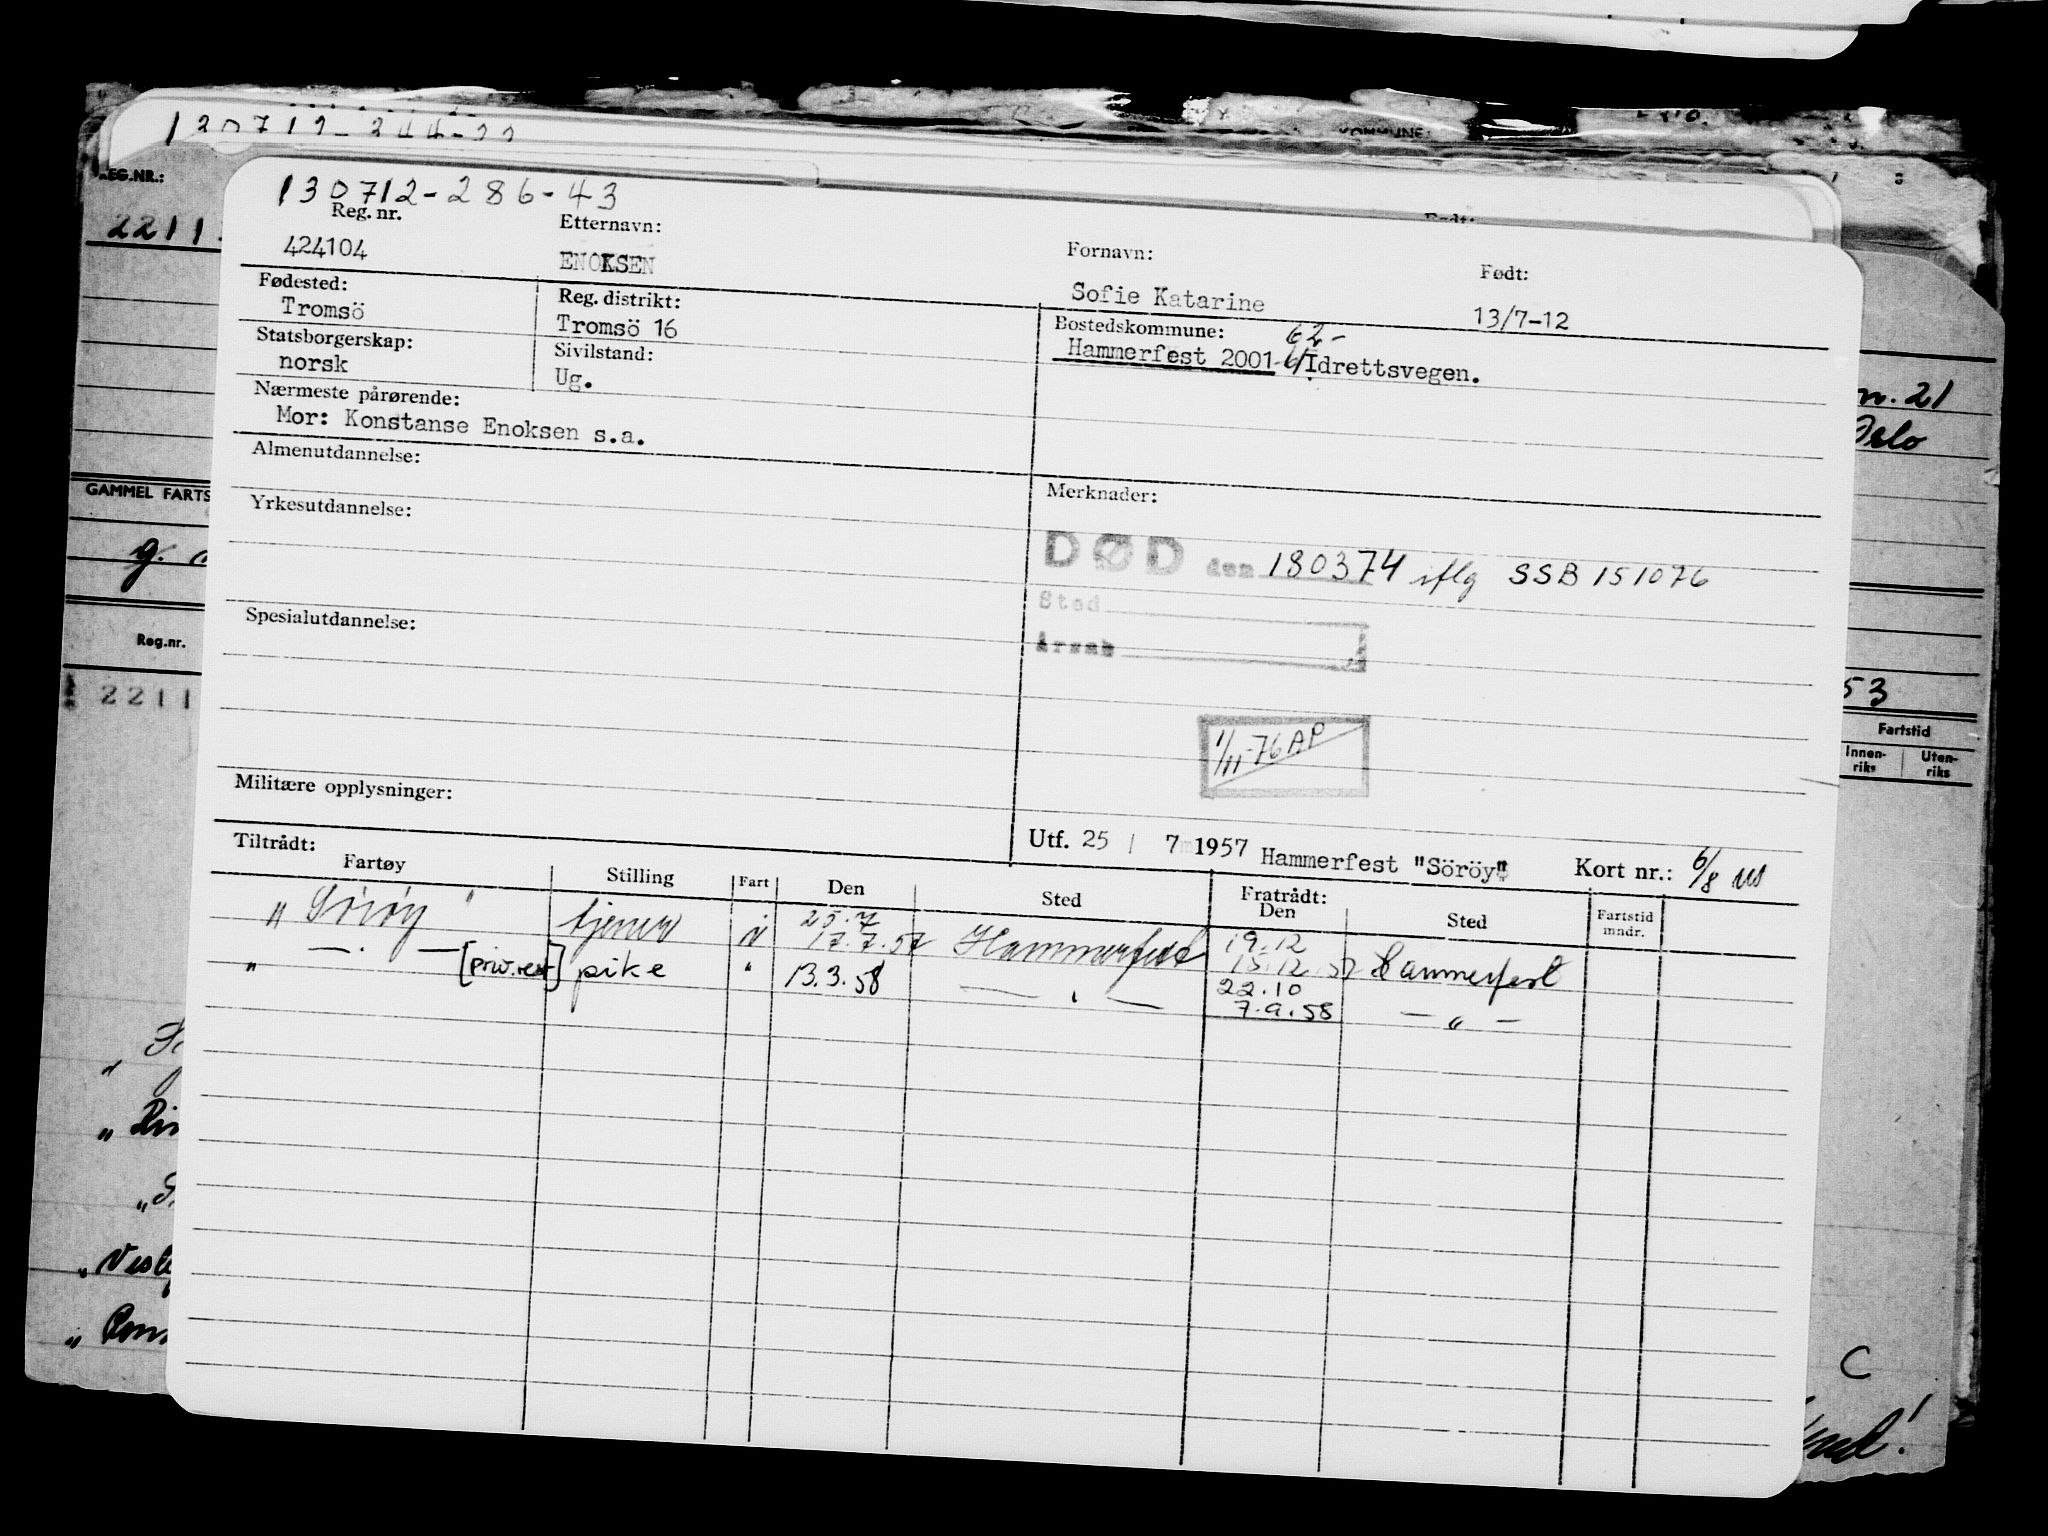 KOMMUNE:
120712-244-22
REG.NR.:
2211
130712-286-43
Reg. nr.
Etternavn:
Fornavn:
Født:
424104
ENOKSEN
Sofie Katarine
13/7-12
Fødested:
Reg. distrikt:
Bostedskommune:
Tromsö
Tromsö 16
62-
Hammerfest 2001 Idrettsvegen.
Statsborgerskap:
Sivilstand:
norsk
Ug.
Nærmeste pårørende:
Mor: Konstanse Enoksen s.a.
Almenutdannelse:
Merknader:
Yrkesutdannelse:
DØD den 180374 iflg SSB 151076
Sted
Årsak
Spesialutdannelse:
1/11-76 AP
Militære opplysninger:
Utf. 25 / 7 1957 Hammerfest "Söröy" Kort nr.: 6/8
Tiltrådt:
Fratrådt:
Fartøy Stilling Fart Den Sted Den Sted Fartstid mndr.
25.7 19.12
"Söröy" tjener i 17.7.57 Hammerfest 15.12.57 Hammerfest
22.10
" — . — [priv.rest] pike " 13.3.58 — . — 7.9.58 — " —
GAMMEL FARTS
g.
Reg.nr.
2211
n. 21
Oslo
53
Fartstid
Innen-
riks
Uten-
riks
C